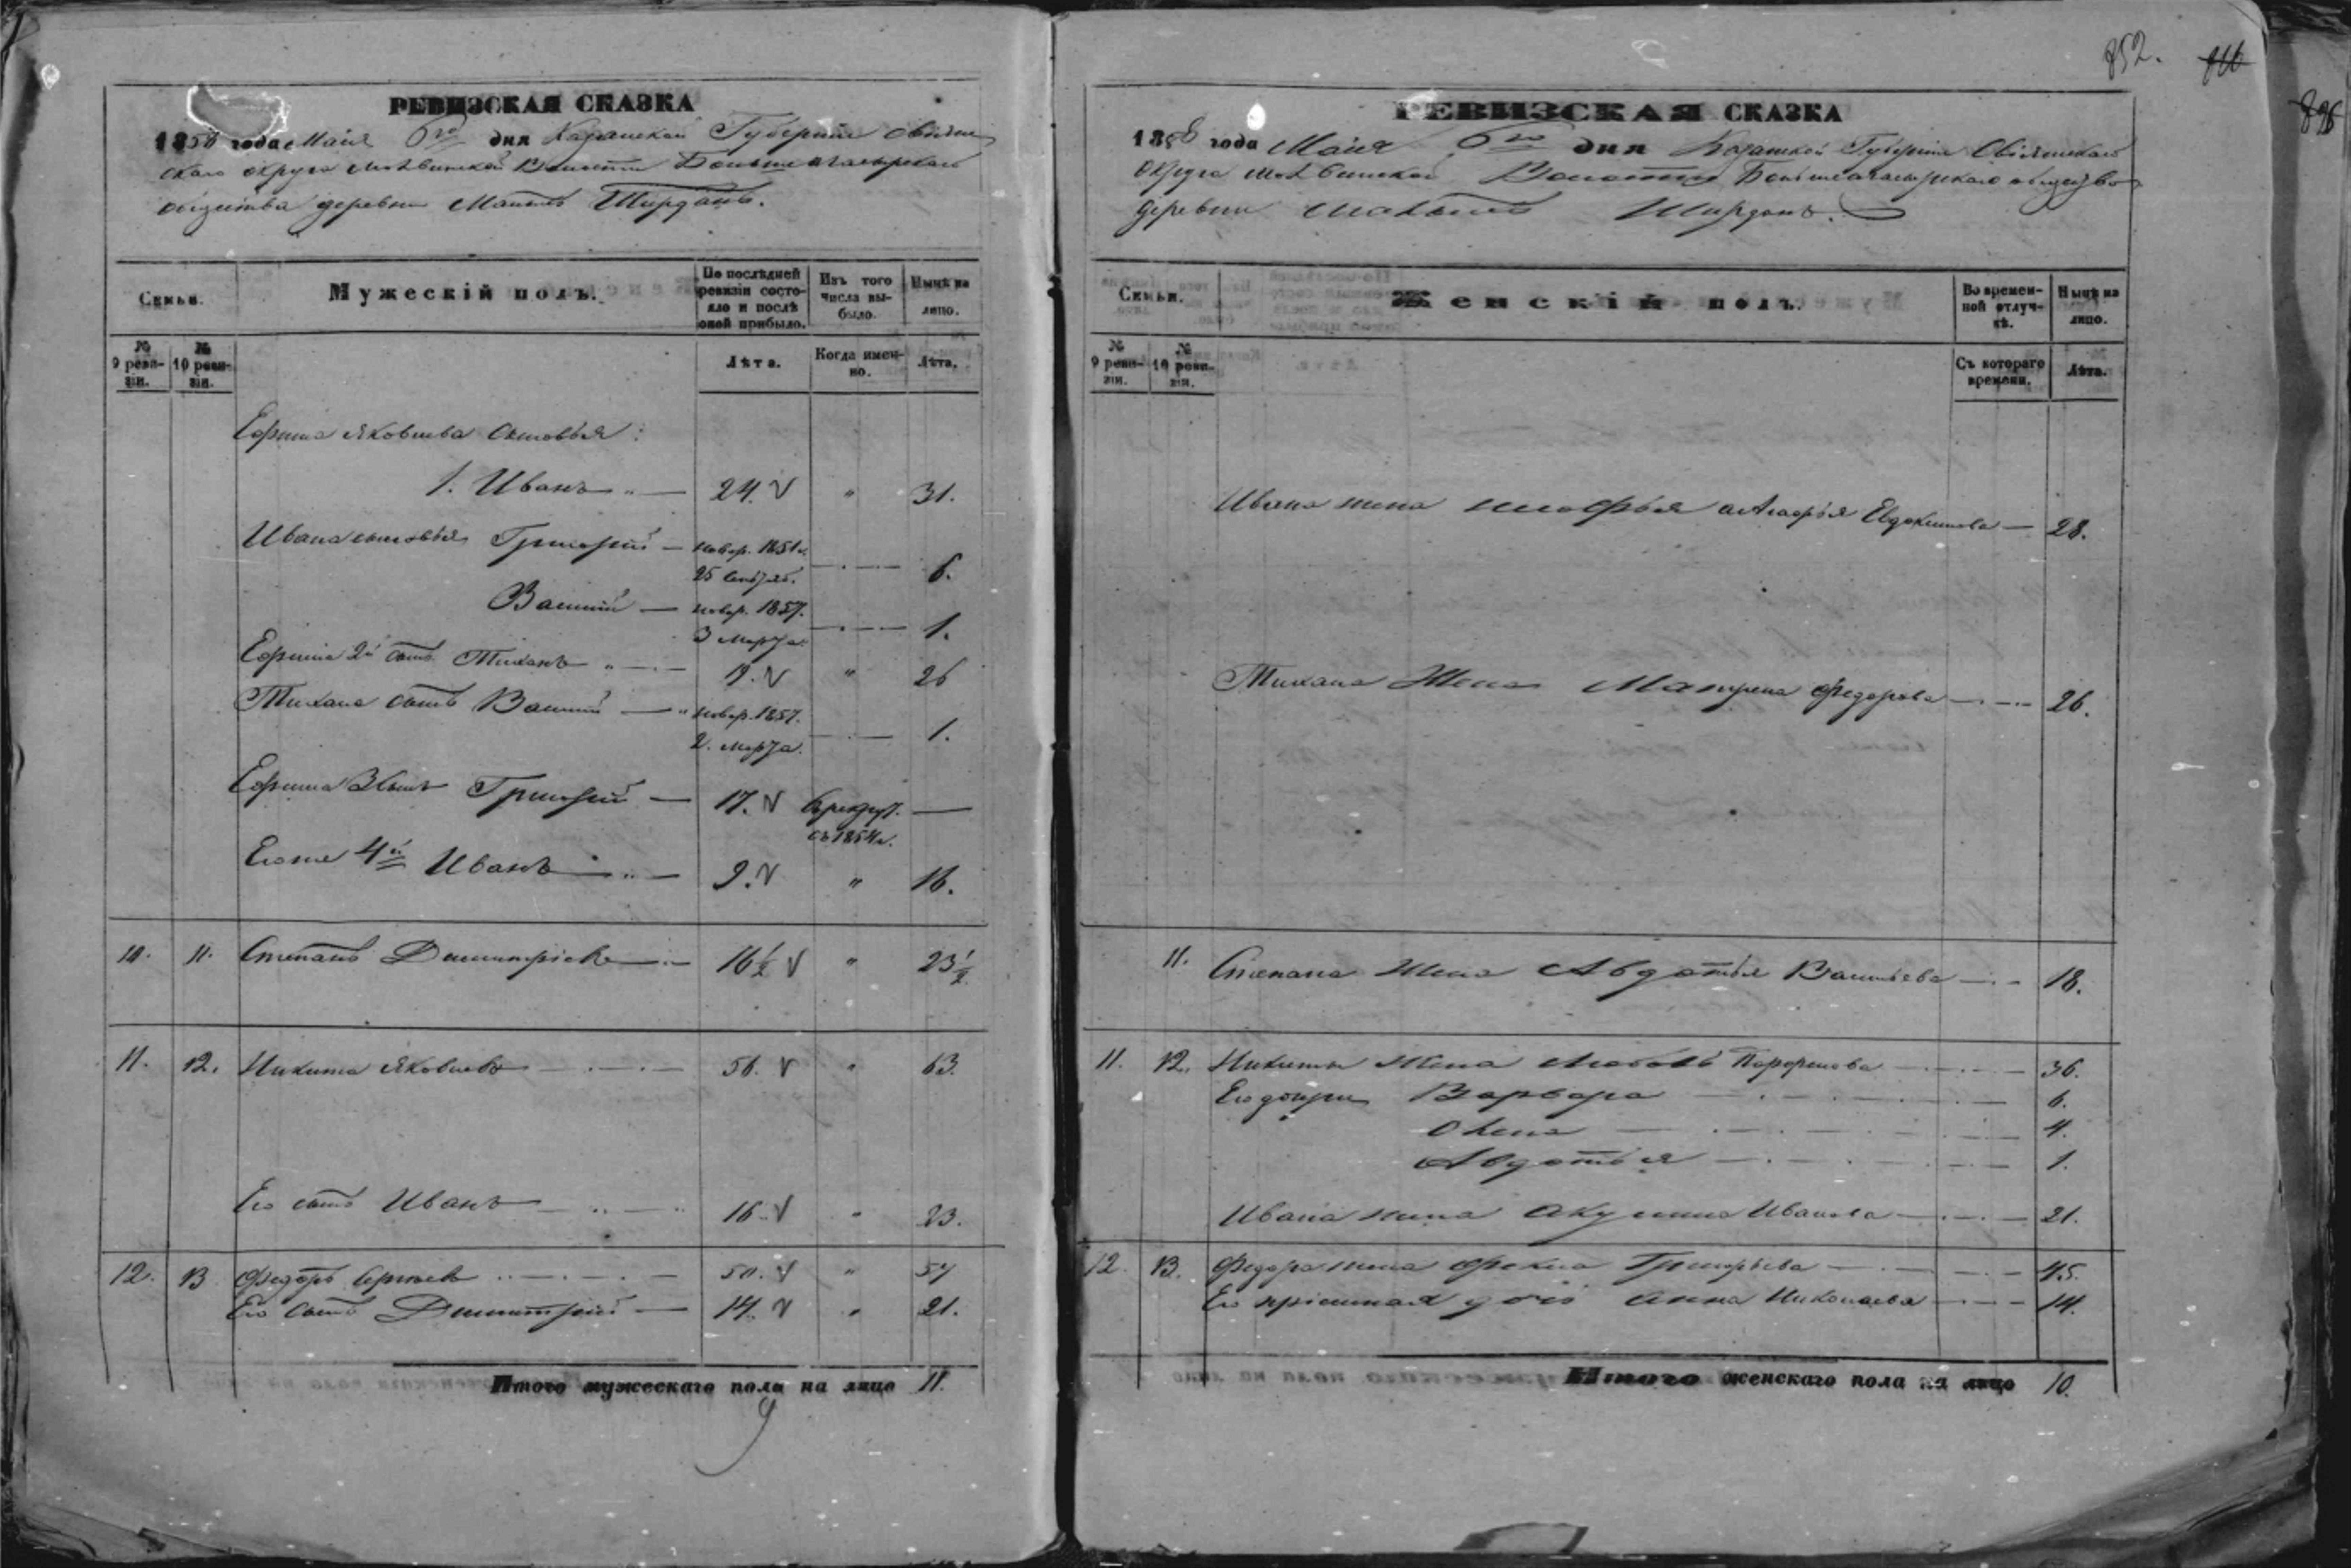 РЕВИЗСКАЯ СКАЗКА
1858 года Маія 6го дня Казанской Губерніи Свіяж
скаго округа Волости Больше
общества деревни Малыхъ Ширданъ.
Семьи.
Мужескій полъ.
По послѣдней ревизіи состояло и послѣ оной прибыло.
Изъ того числа выбыло.
Нынѣ на лицо.
№ 9 ревизіи.
№ 10 ревизіи.
Лѣта.
Когда именно.
Лѣта.
Ефима Яковлева сыновья:
1. Иванъ „ — 24. V „ 31.
Ивана сыновья Григорій — новор. 1851г.
25 Сентяб. — 6.
Василій — новор. 1857.
3 Марта. — 1.
Ефима 2й сынъ Тиханъ „ — 19. V „ 26
Тихана сынъ Василій — „ новор. 1857.
2. Марта. — 1.
Ефима 3 сынъ Григорій — 17. V в рекрут. —
съ 1854г.
Его же 4й Иванъ — „ — 9. V „ 16.
10. 11. Степанъ Димитріевъ — 16 1/2 V „ 23 1/2.
11. 12. Никита Яковлевъ — 56. V „ 63.
Его сынъ Иванъ — „ — „ 16. V „ 23.
12. 13 Федоръ Сергѣевъ — 50. V „ 57
Его сынъ Димитрій — 14. V „ 21.
Итого мужескаго пола на лицо 11.
852.
896
РЕВИЗСКАЯ СКАЗКА
1858 года Маія 6го дня Казанской Губерніи Свіяжскаго
Округа Волости Больше общества
деревни Малыхъ Ширданъ.
Семьи.
Женскій полъ.
Во временной отлучкѣ.
Нынѣ на лицо.
№ 9 ревизіи.
№ 10 ревизіи.
Съ котораго времени.
Лѣта.
Ивана жена Евдокимова — 28.
Тихана Жена Матрена Федорова — 26.
11. Степана Жена Авдотья Васильева — 18.
11. 12. Никиты Жена Любовь — 36.
Его дочери Варвара — 6.
Олена — 4.
Авдотья — 1.
Ивана жена Акулина Иванова — 21.
12. 13. Федора жена Фекла Григорьева — 45.
Его пріемная дочь Анна Николаева — 14.
Итого женскаго пола на лицо 10.